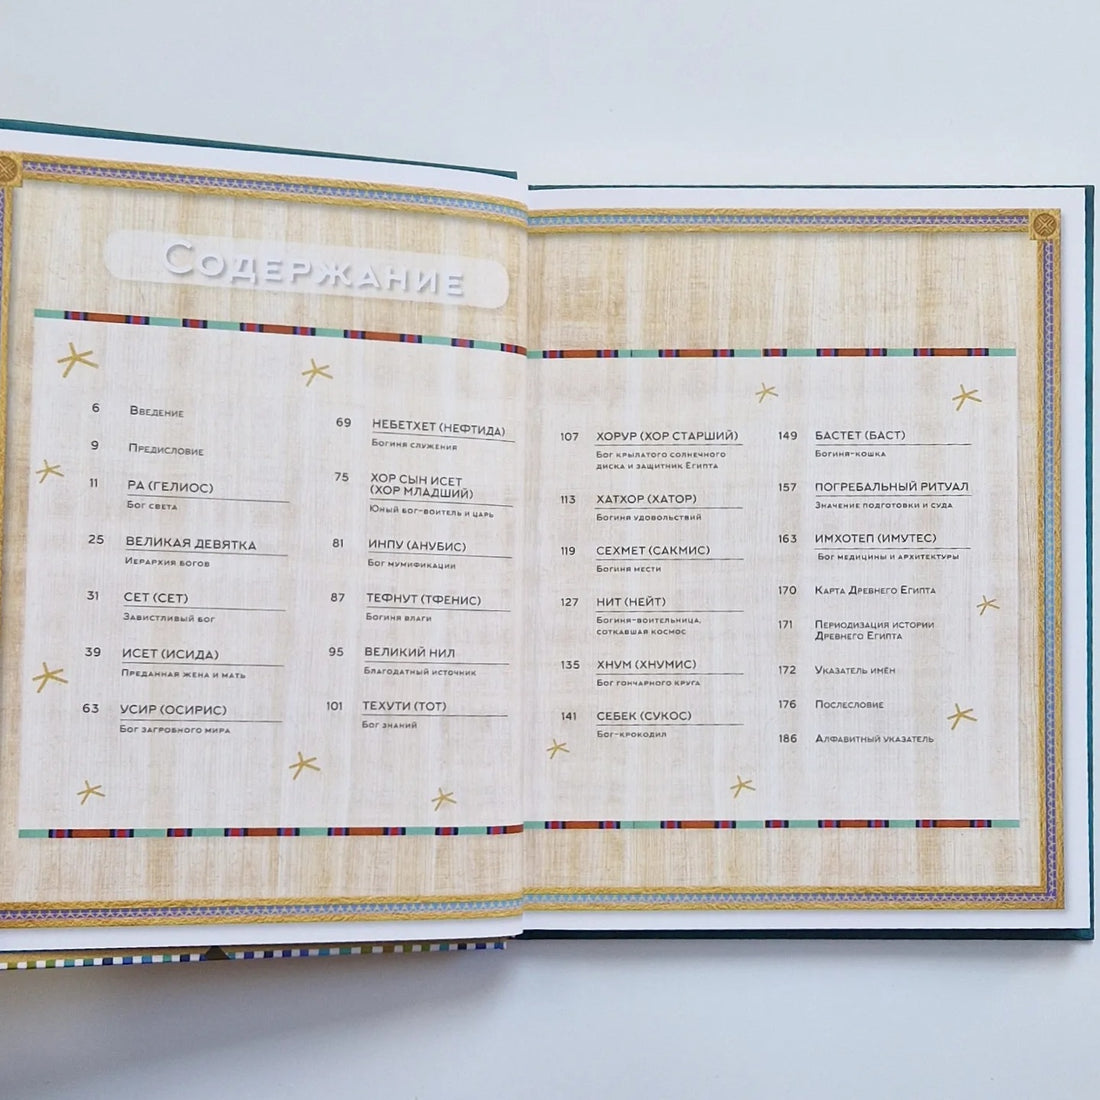 Содержание
6 Введение
9 Предисловие
11 РА (ГЕЛИОС)
Бог света
25 ВЕЛИКАЯ ДЕВЯТКА
Иерархия богов
31 СЕТ (СЕТ)
Завистливый бог
39 ИСЕТ (ИСИДА)
Преданная жена и мать
63 УСИР (ОСИРИС)
Бог загробного мира
69 НЕБЕТХЕТ (НЕФТИДА)
Богиня служения
75 ХОР СЫН ИСЕТ
(ХОР МЛАДШИЙ)
Юный бог-воитель и царь
81 ИНПУ (АНУБИС)
Бог мумификации
87 ТЕФНУТ (ТФЕНИС)
Богиня влаги
95 ВЕЛИКИЙ НИЛ
Благодатный источник
101 ТЕХУТИ (ТОТ)
Бог знаний
107 ХОРУР (ХОР СТАРШИЙ)
Бог крылатого солнечного
диска и защитник Египта
113 ХАТХОР (ХАТОР)
Богиня удовольствий
119 СЕХМЕТ (САКМИС)
Богиня мести
127 НИТ (НЕЙТ)
Богиня-воительница,
соткавшая космос
135 ХНУМ (ХНУМИС)
Бог гончарного круга
141 СЕБЕК (СУКОС)
Бог-крокодил
149 БАСТЕТ (БАСТ)
Богиня-кошка
157 ПОГРЕБАЛЬНЫЙ РИТУАЛ
Значение подготовки и суда
163 ИМХОТЕП (ИМУТЕС)
Бог медицины и архитектуры
170 Карта Древнего Египта
171 Периодизация истории
Древнего Египта
172 Указатель имён
176 Послесловие
186 Алфавитный указатель